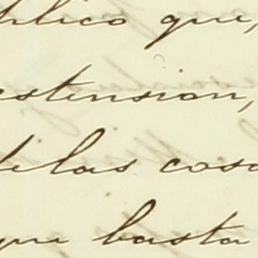 blico que,
estension,
delas cosa
que basta